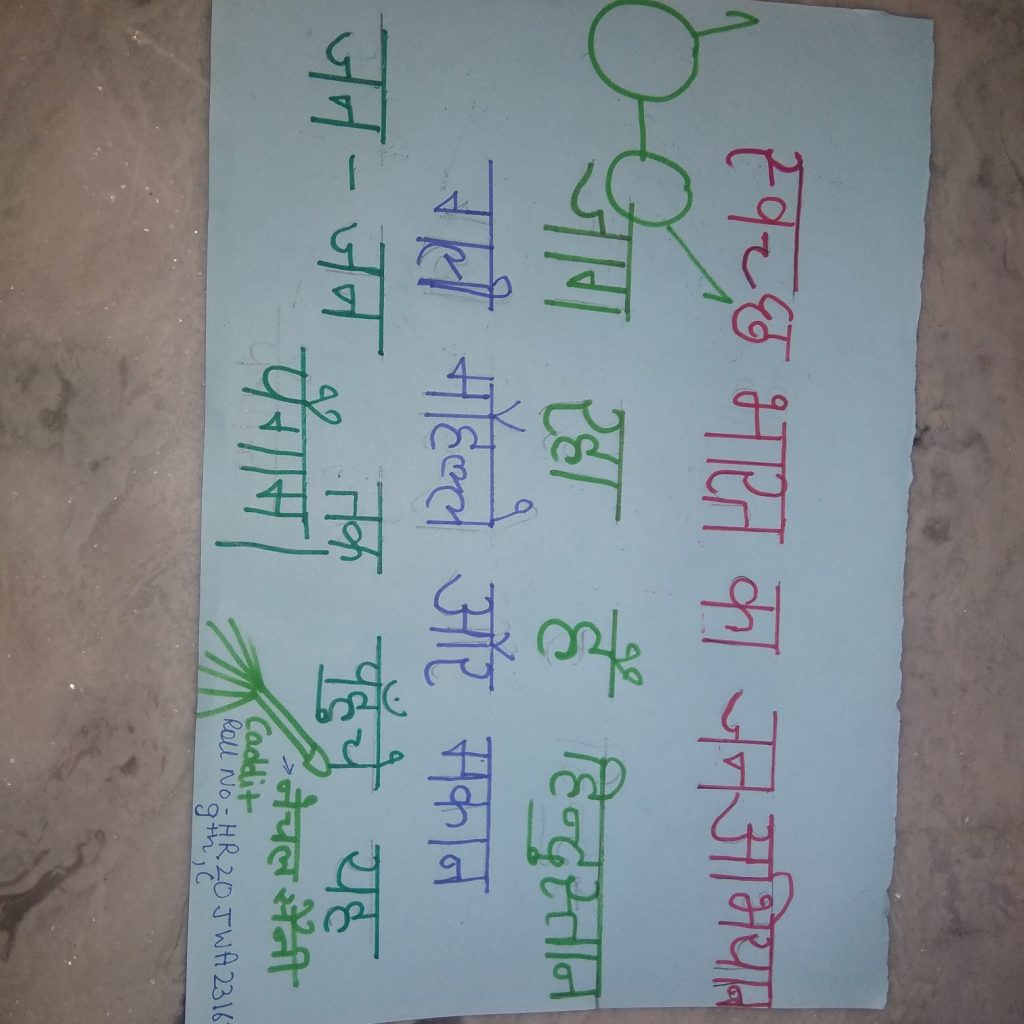 स्वच्छ भारत का जनअभियान
जाग रहा हैं हिन्दुस्तान
गली मोहल्ले और मकान
जन - जन तक पहुँचे यह
पैगाम।
→ नेयल सैनी
Caddit
Roll No - HR20JWA2316
9th, C